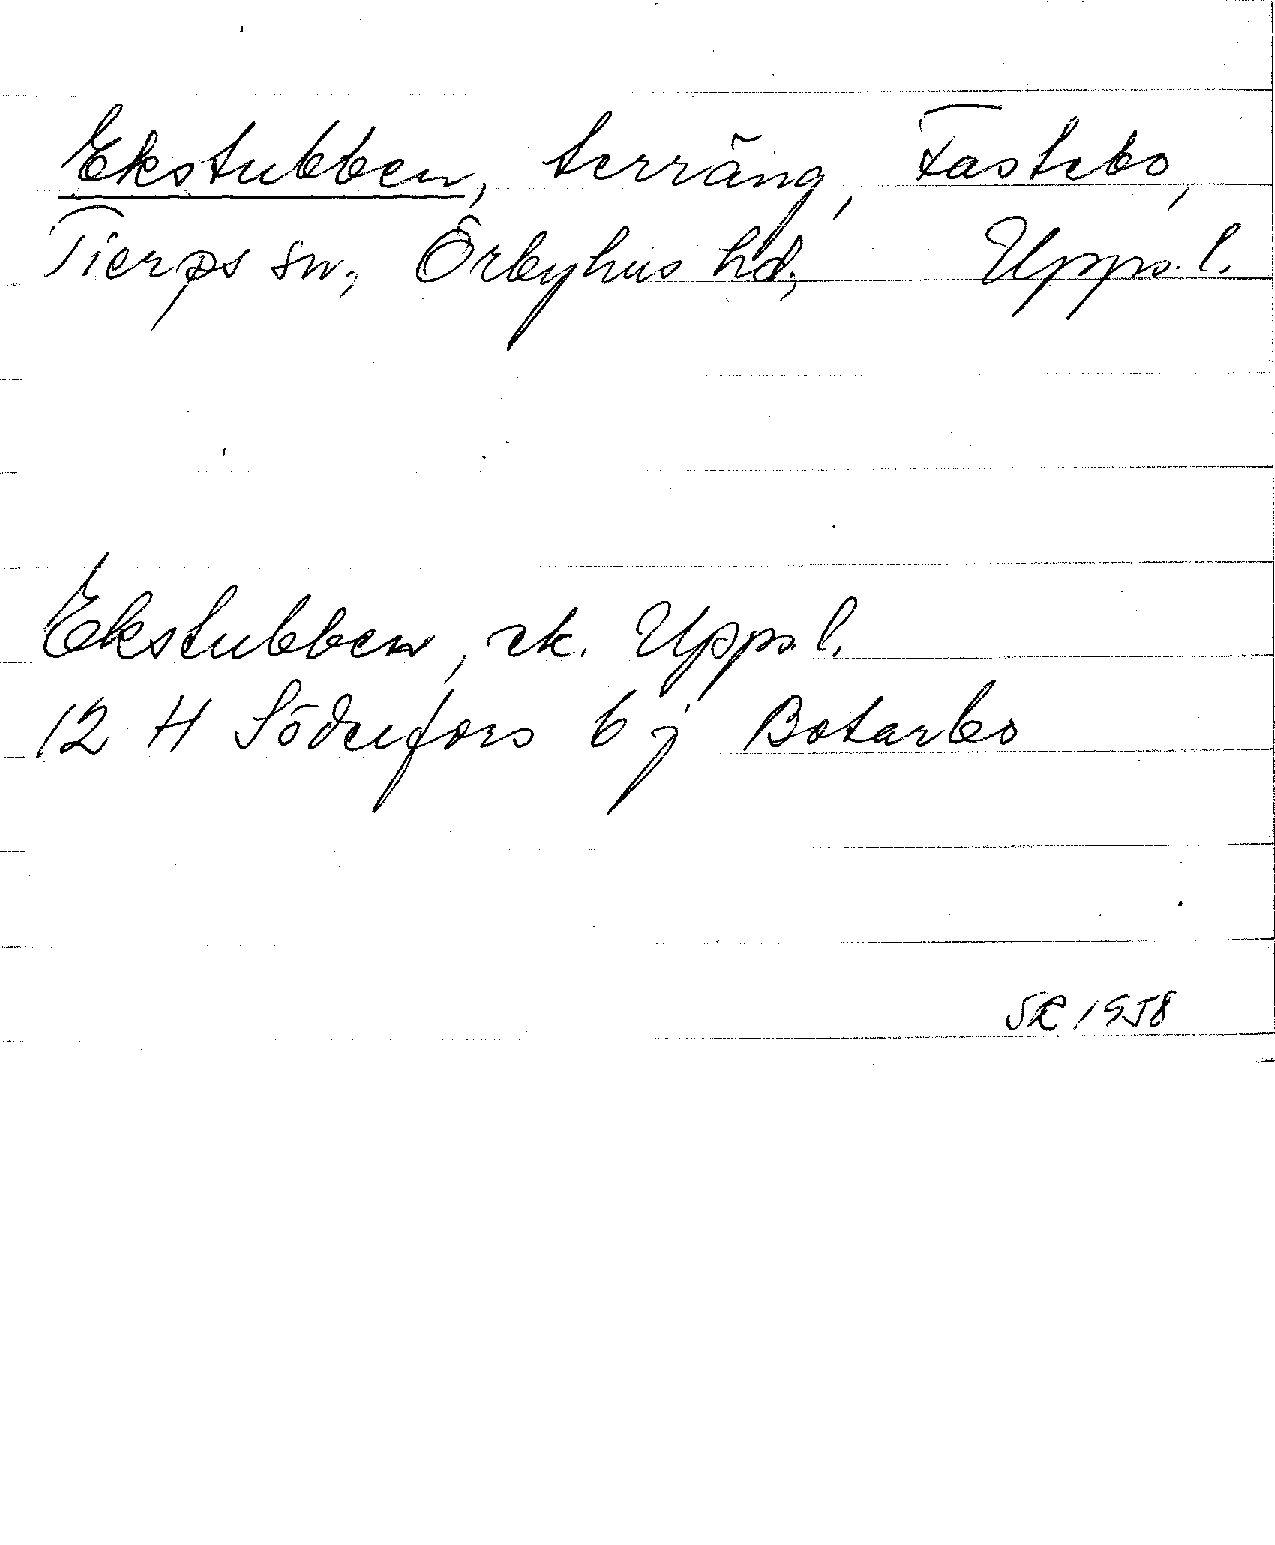 Ekstubben, terräng, Fastebo,
Tierps sn., Örbyhus hd., Upps. l.
Ekstubben, ek. Upps. l.
12 H Söderfors 6 j Botarbo
SR 1958